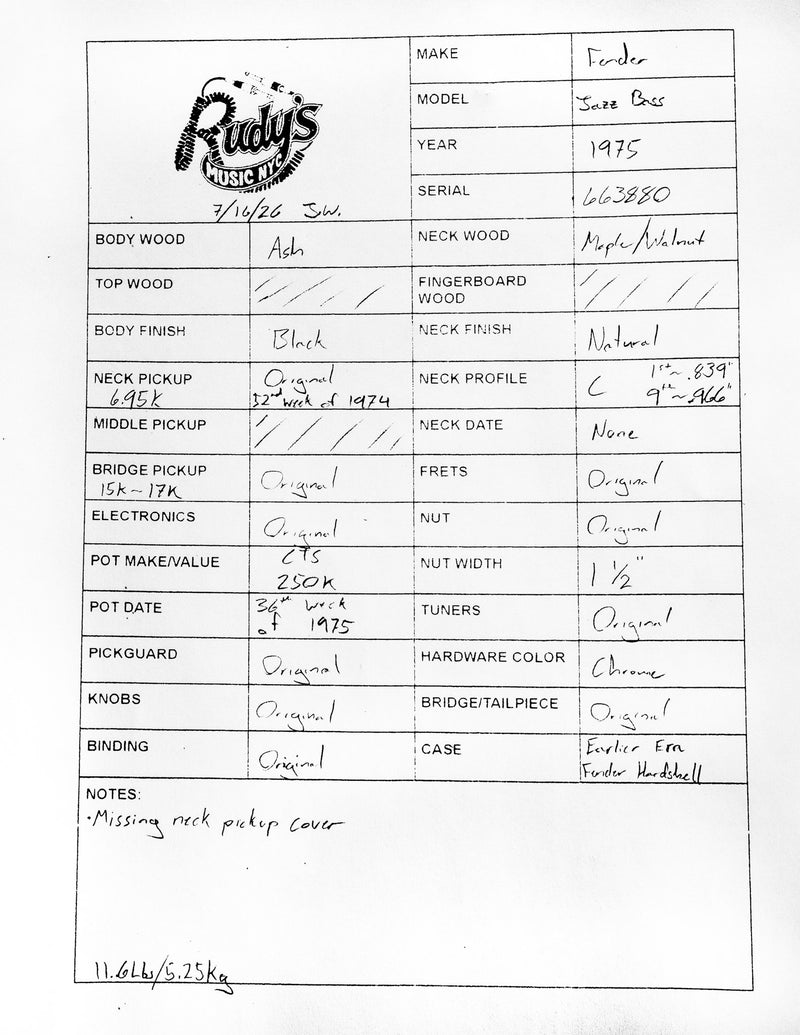 Rudy's
MUSIC NYC
7/16/26 J.W.
MAKE Fender
MODEL Jazz Bass
YEAR 1975
SERIAL 663880
BODY WOOD Ash
NECK WOOD Maple/Walnut
TOP WOOD / / / /
FINGERBOARD WOOD / / / /
BODY FINISH Black
NECK FINISH Natural
NECK PICKUP Original
6.95K 52nd week of 1974
NECK PROFILE C 1st ~ .839"
9th ~ .966"
MIDDLE PICKUP / / / / /
NECK DATE None
BRIDGE PICKUP Original
15K ~ 17K
FRETS Original
ELECTRONICS Original
NUT Original
POT MAKE/VALUE CTS
250K
NUT WIDTH 1 1/2"
POT DATE 36th week
of 1975
TUNERS Original
PICKGUARD Original
HARDWARE COLOR Chrome
KNOBS Original
BRIDGE/TAILPIECE Original
BINDING Original
CASE Earlier Era
Fender Hardshell
NOTES:
·Missing neck pickup cover
11.6Lb/5.25Kg